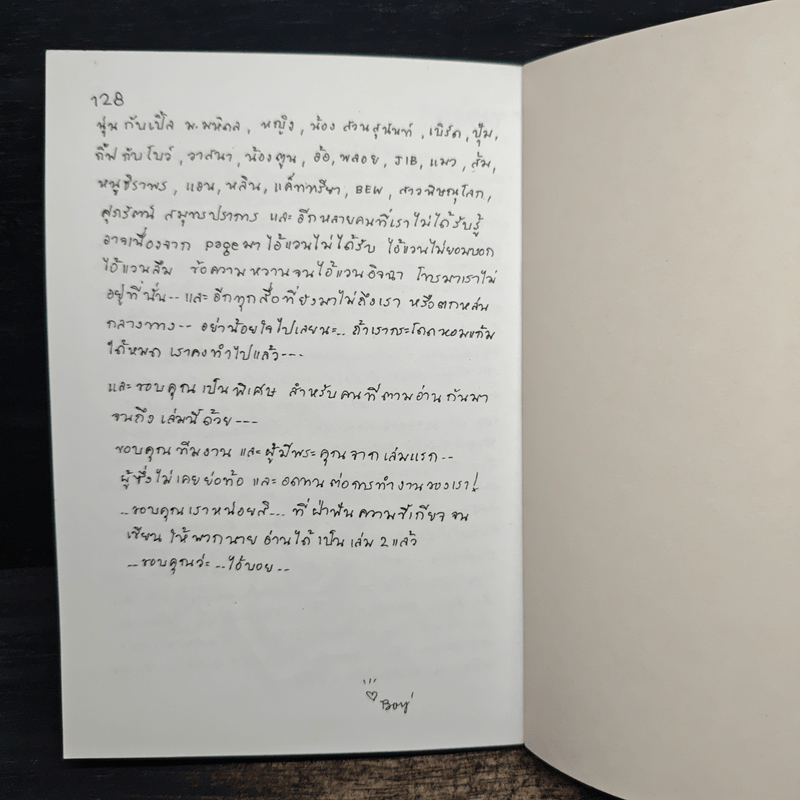 128
นุ่น กับเปิ้ล ม.มหิดล, หญิง, น้อง สวนสุนันท์, เบิร์ด, ปุ้ม,
กิ๊ฟ กับ โบว์, วาสนา, น้องตูน, อ้อ, พลอย, JIB, แมว, ส้ม,
หนูธิราพร, แอน, หลิน, แค็ททรียา, BEW, สาวพิษณุโลก,
สุภรัตน์ สมุทรปราการ และ อีกหลายคนที่เราไม่ได้รับรู้
อาจเนื่องจาก page มา ไอ้แวนไม่ได้รับ ไอ้แวนไม่ยอมบอก
ไอ้แวนลืม ข้อความหวานจนไอ้แวนอิจฉา โทรมาเราไม่
อยู่ที่นั่น-- และ อีกทุกสื่อที่ยังมาไม่ถึงเรา หรือตกหล่น
กลางทาง-- อย่าน้อยใจไปเลยนะ-- ถ้าเรากระโดดหอมแก้ม
ได้หมด เราคงทำไปแล้ว---
และขอบคุณเป็นพิเศษ สำหรับคนที่ตามอ่านกันมา
จนถึงเล่มนี้ด้วย---
ขอบคุณทีมงาน และผู้มีพระคุณจากเล่มแรก--
ผู้ซึ่งไม่เคยย่อท้อ และ อดทนต่อการทำงานของเรา!
--ขอบคุณเราหน่อยสิ--- ที่ฝ่าฟันความขี้เกียจ จน
เขียน ให้พวกนาย อ่านได้เป็นเล่ม 2 แล้ว
--ขอบคุณว่ะ --ไอ้บอย--
Boy